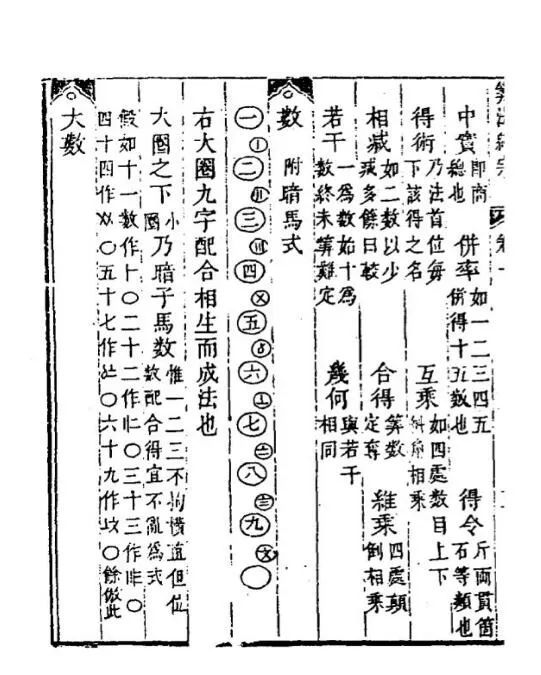 算法統宗 卷一
中實 即商總也 併率 如一二三四五併得十五數也 得令 斤兩貫箇石等類也
得術 乃法首位每下該得之名 互乘 如四處數目上下斜角相乘
相減 如二數以少減多餘曰較 合得 算數定奪 維乘 四處顛倒相乘
若干 一爲數始十爲數終未算難定 幾何 與若干相同
數 附暗馬式
一〡二〢三〣四〤五〥六〦七〧八〨九〩〇
右大圈九字配合相生而成法也
大圈之下小圈乃暗子馬數 惟一二三不拘橫直但位數配合得宜不亂爲式
假如十一數作〡一〇二十二作〢二〇三十三作〣三〇
四十四作〤〤〇五十七作〥〧〇六十九作〦〩〇餘倣此
大數